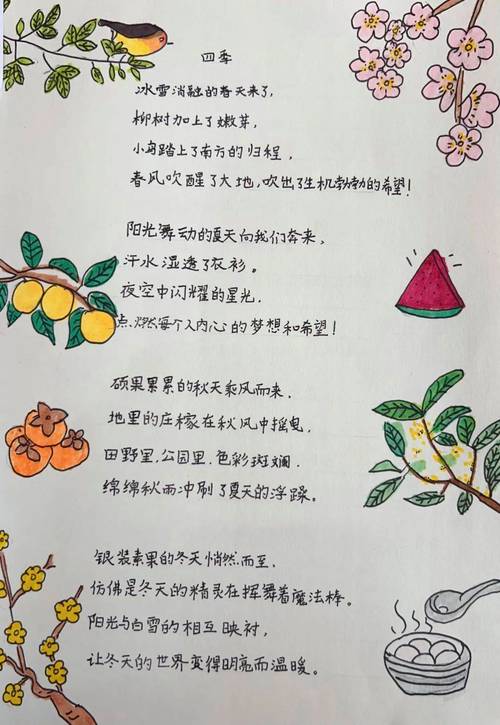 四季
冰雪消融的春天来了，
柳树加上了嫩芽，
小鸟踏上了南方的归程，
春风吹醒了大地，吹出了生机勃勃的希望！
阳光舞动的夏天向我们奔来，
汗水湿透了衣衫。
夜空中闪耀的星光．
点燃每个人内心的梦想和希望！
硕果累累的秋天乘风而来．
地里的庄稼在秋风中摇曳，
田野里，公园里．色彩斑斓．
绵绵秋雨冲刷了夏天的浮躁。
银装素果的冬天悄然而至．
仿佛是冬天的精灵在挥舞着魔法棒。
阳光与白雪的相互映衬，
让冬天的世界变得明亮而温暖。